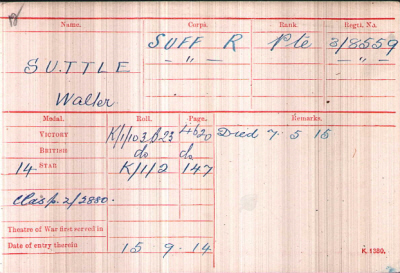 Name. Corps. Rank. Regtl. No.
SUFF R Pte 3/8559
— " — — " —
SUTTLE
Walter
Medal. Roll. Page. Remarks.
VICTORY K/1/103.B.23 4620 Died 7.5.15
BRITISH do do
14 STAR K/1/2 147
Clasp. 2/3880.
Theatre of War first served in
Date of entry therein 15.9.14
K. 1380.